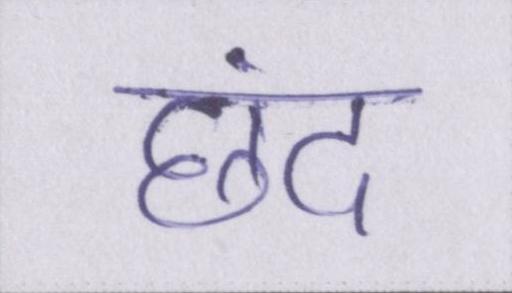 छंद